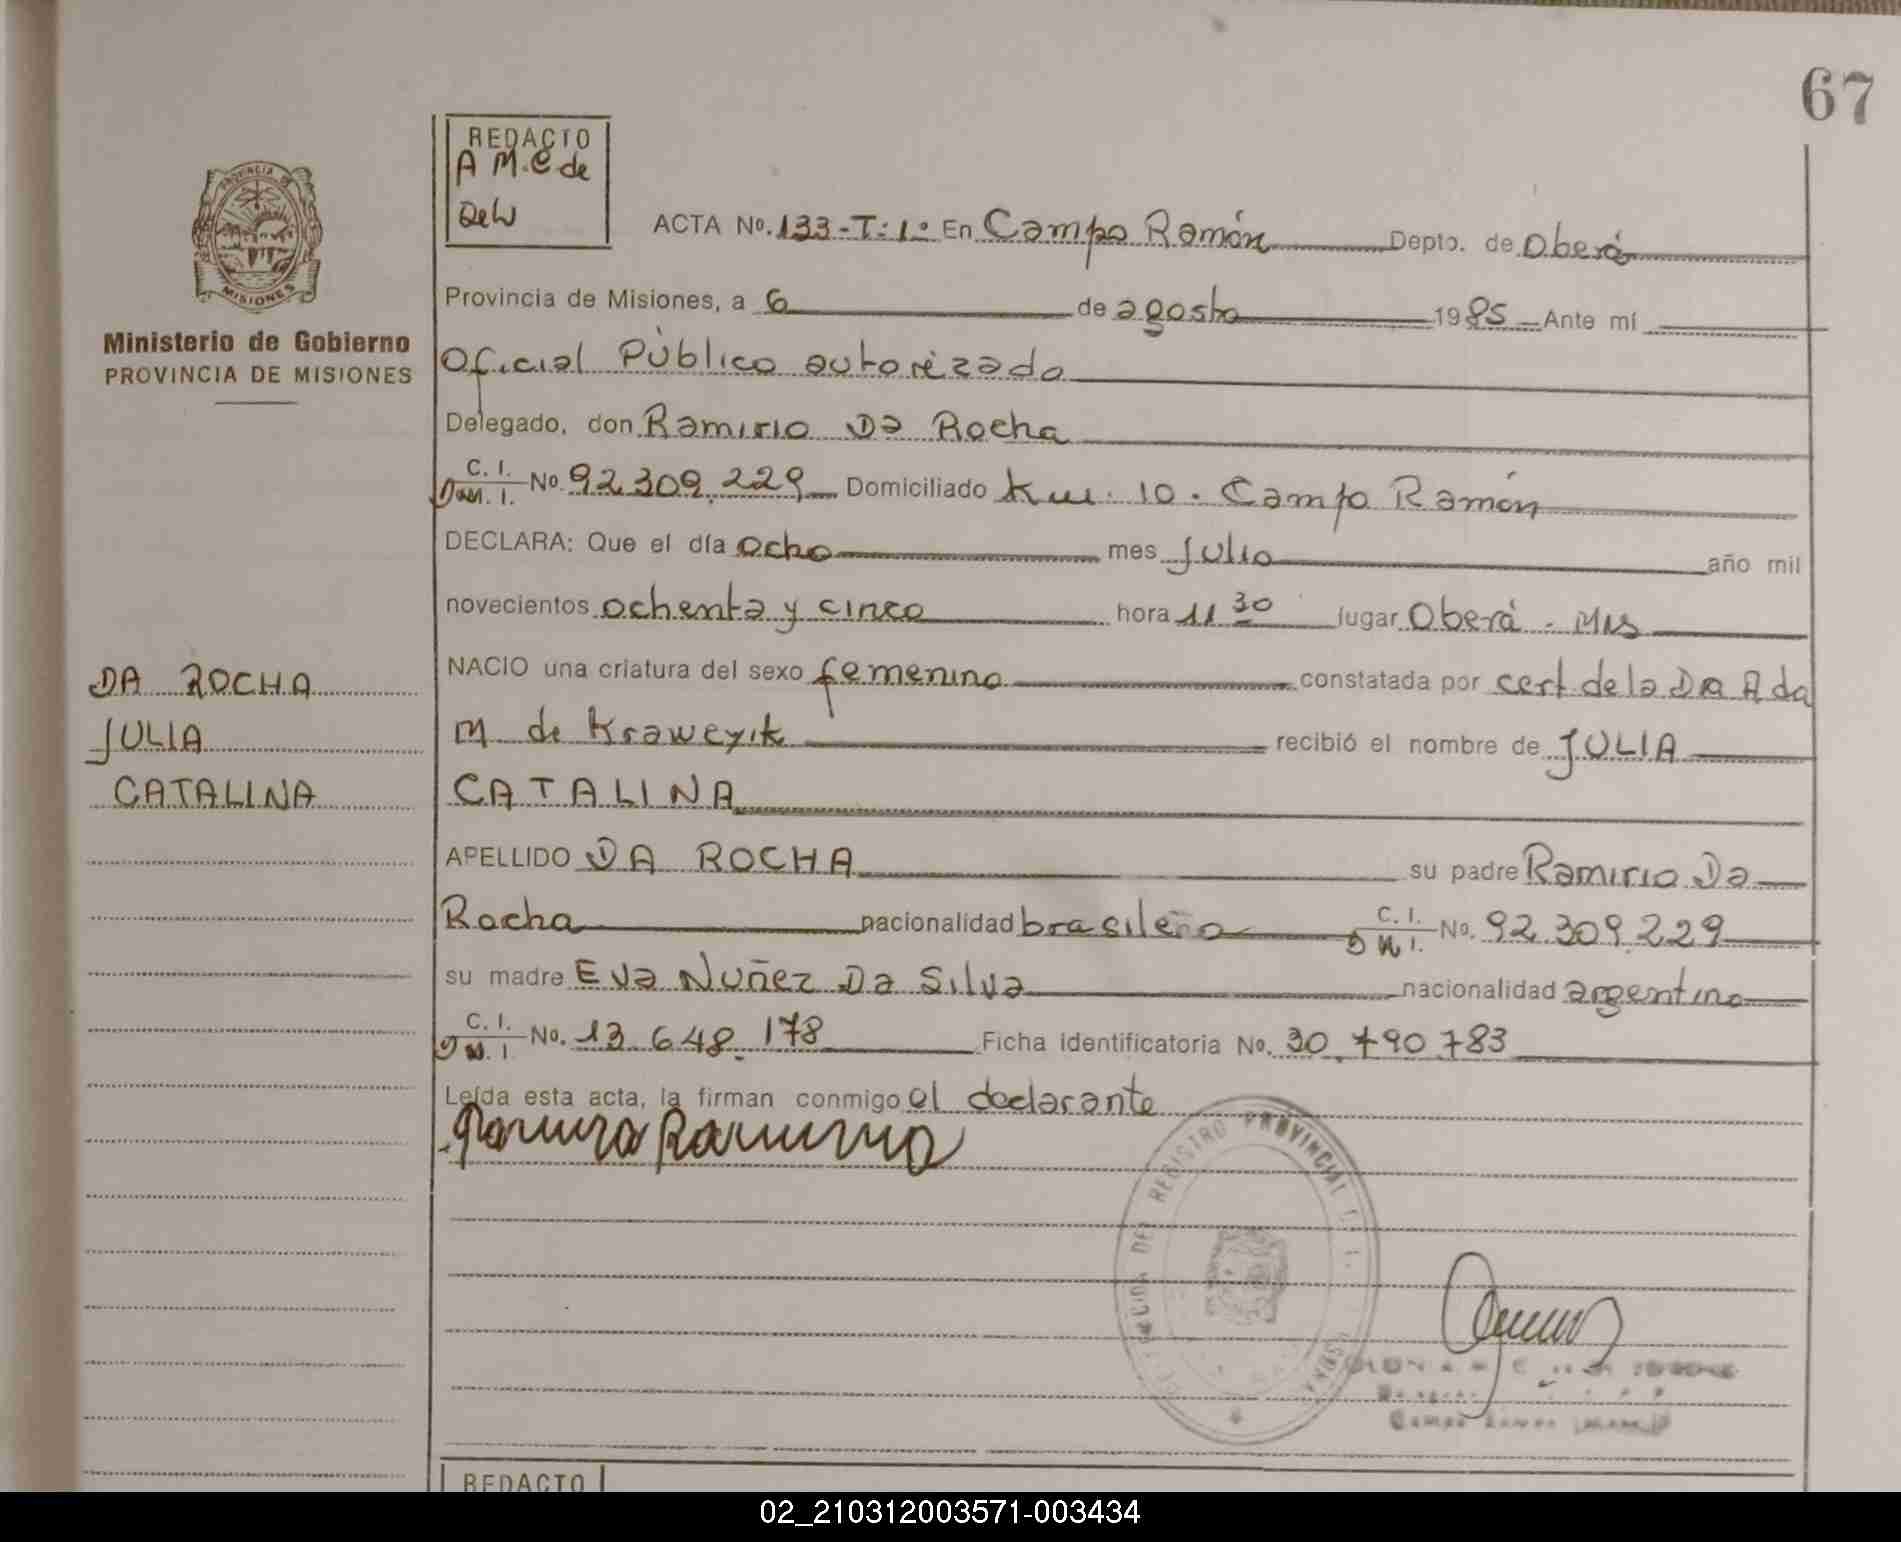 67
REDACTO
A M.C de
DeW
PROVINCIA DE
MISIONES
ACTA No. 133-T:1º En Campo Ramón Depto. de Oberá
Provincia de Misiones, a 6 de agosto 1985 Ante mí
Ministerio de Gobierno
PROVINCIA DE MISIONES
Oficial Público autorizado
Delegado, don Ramirio Da Rocha
C. I.
D.N.I. No. 92.309.229 Domiciliado Km. 10. Campo Ramón
DECLARA: Que el día ocho mes Julio año mil
novecientos ochenta y cinco hora 11 30 lugar Oberá. Mis
NACIO una criatura del sexo femenino constatada por cert de la Dra Ada
M de Kraweyik recibió el nombre de JULIA
CATALINA
DA ROCHA
JULIA
CATALINA
APELLIDO DA ROCHA su padre Ramirio Da
Rocha nacionalidad brasileño C. I.
D N I. No. 92.309.229
su madre Eva Nuñez Da Silva nacionalidad argentina
C. I.
D N. I. No. 13.648.178 Ficha identificatoria No. 30.790.783
Leída esta acta, la firman conmigo el declarante
REGISTRO PROVINCIAL
REDACTO
02_210312003571-003434